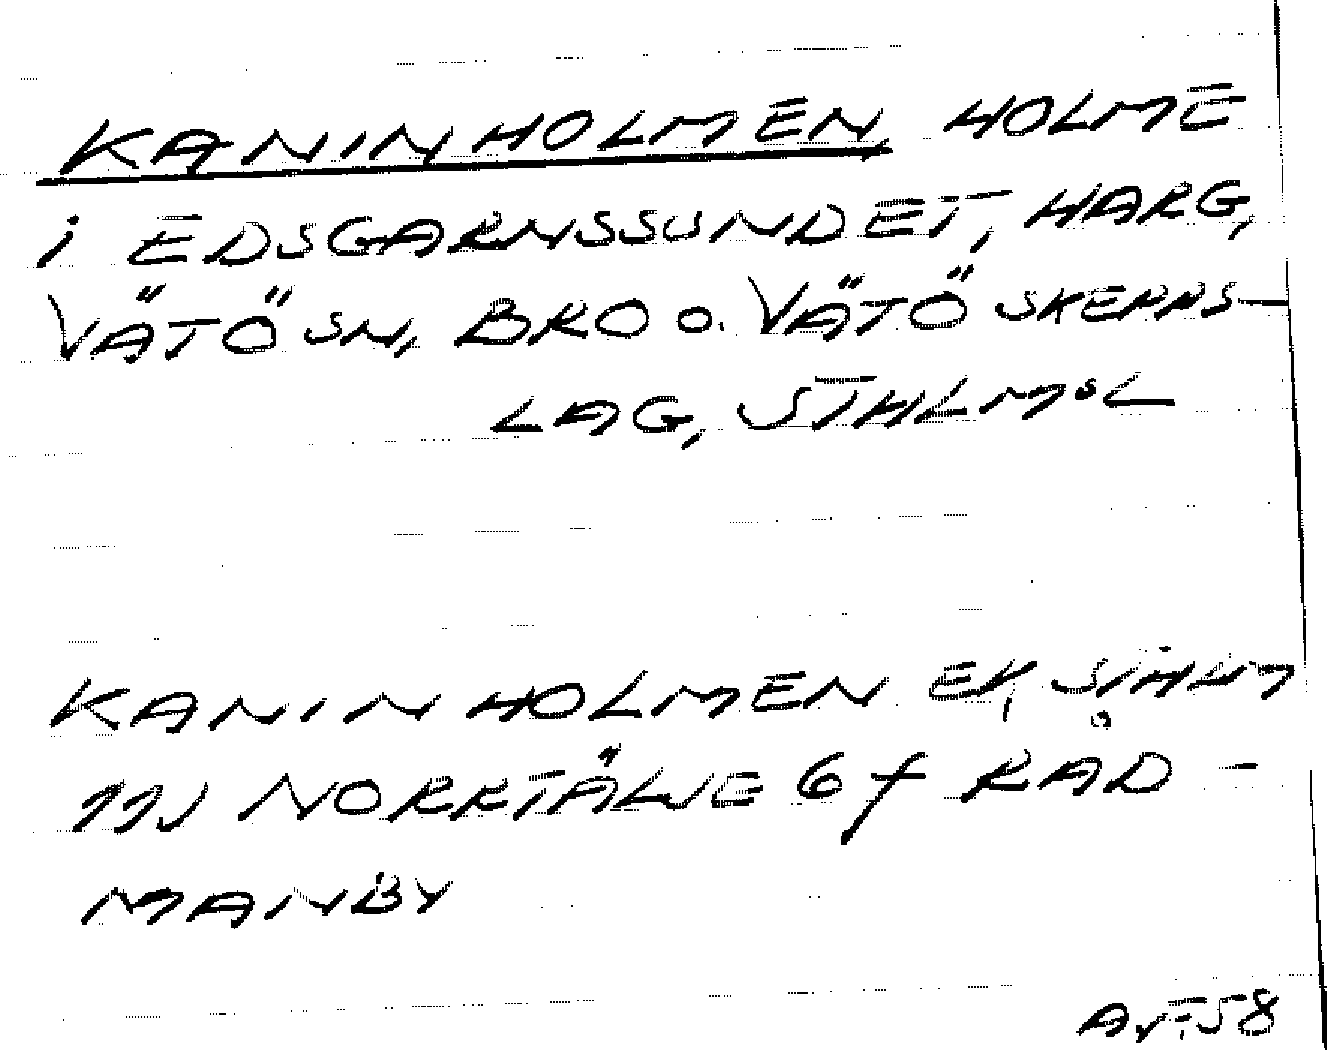 KANINHOLMEN, HOLME
i EDSGARNSSUNDET, HARG,
VÄTÖ SN, BRO o. VÄTÖ SKEPPS-
LAG, STHLMS L
KANINHOLMEN EK, STHLM
11J NORRTÄLJE 6 f RÅD-
MANBY
AV-58